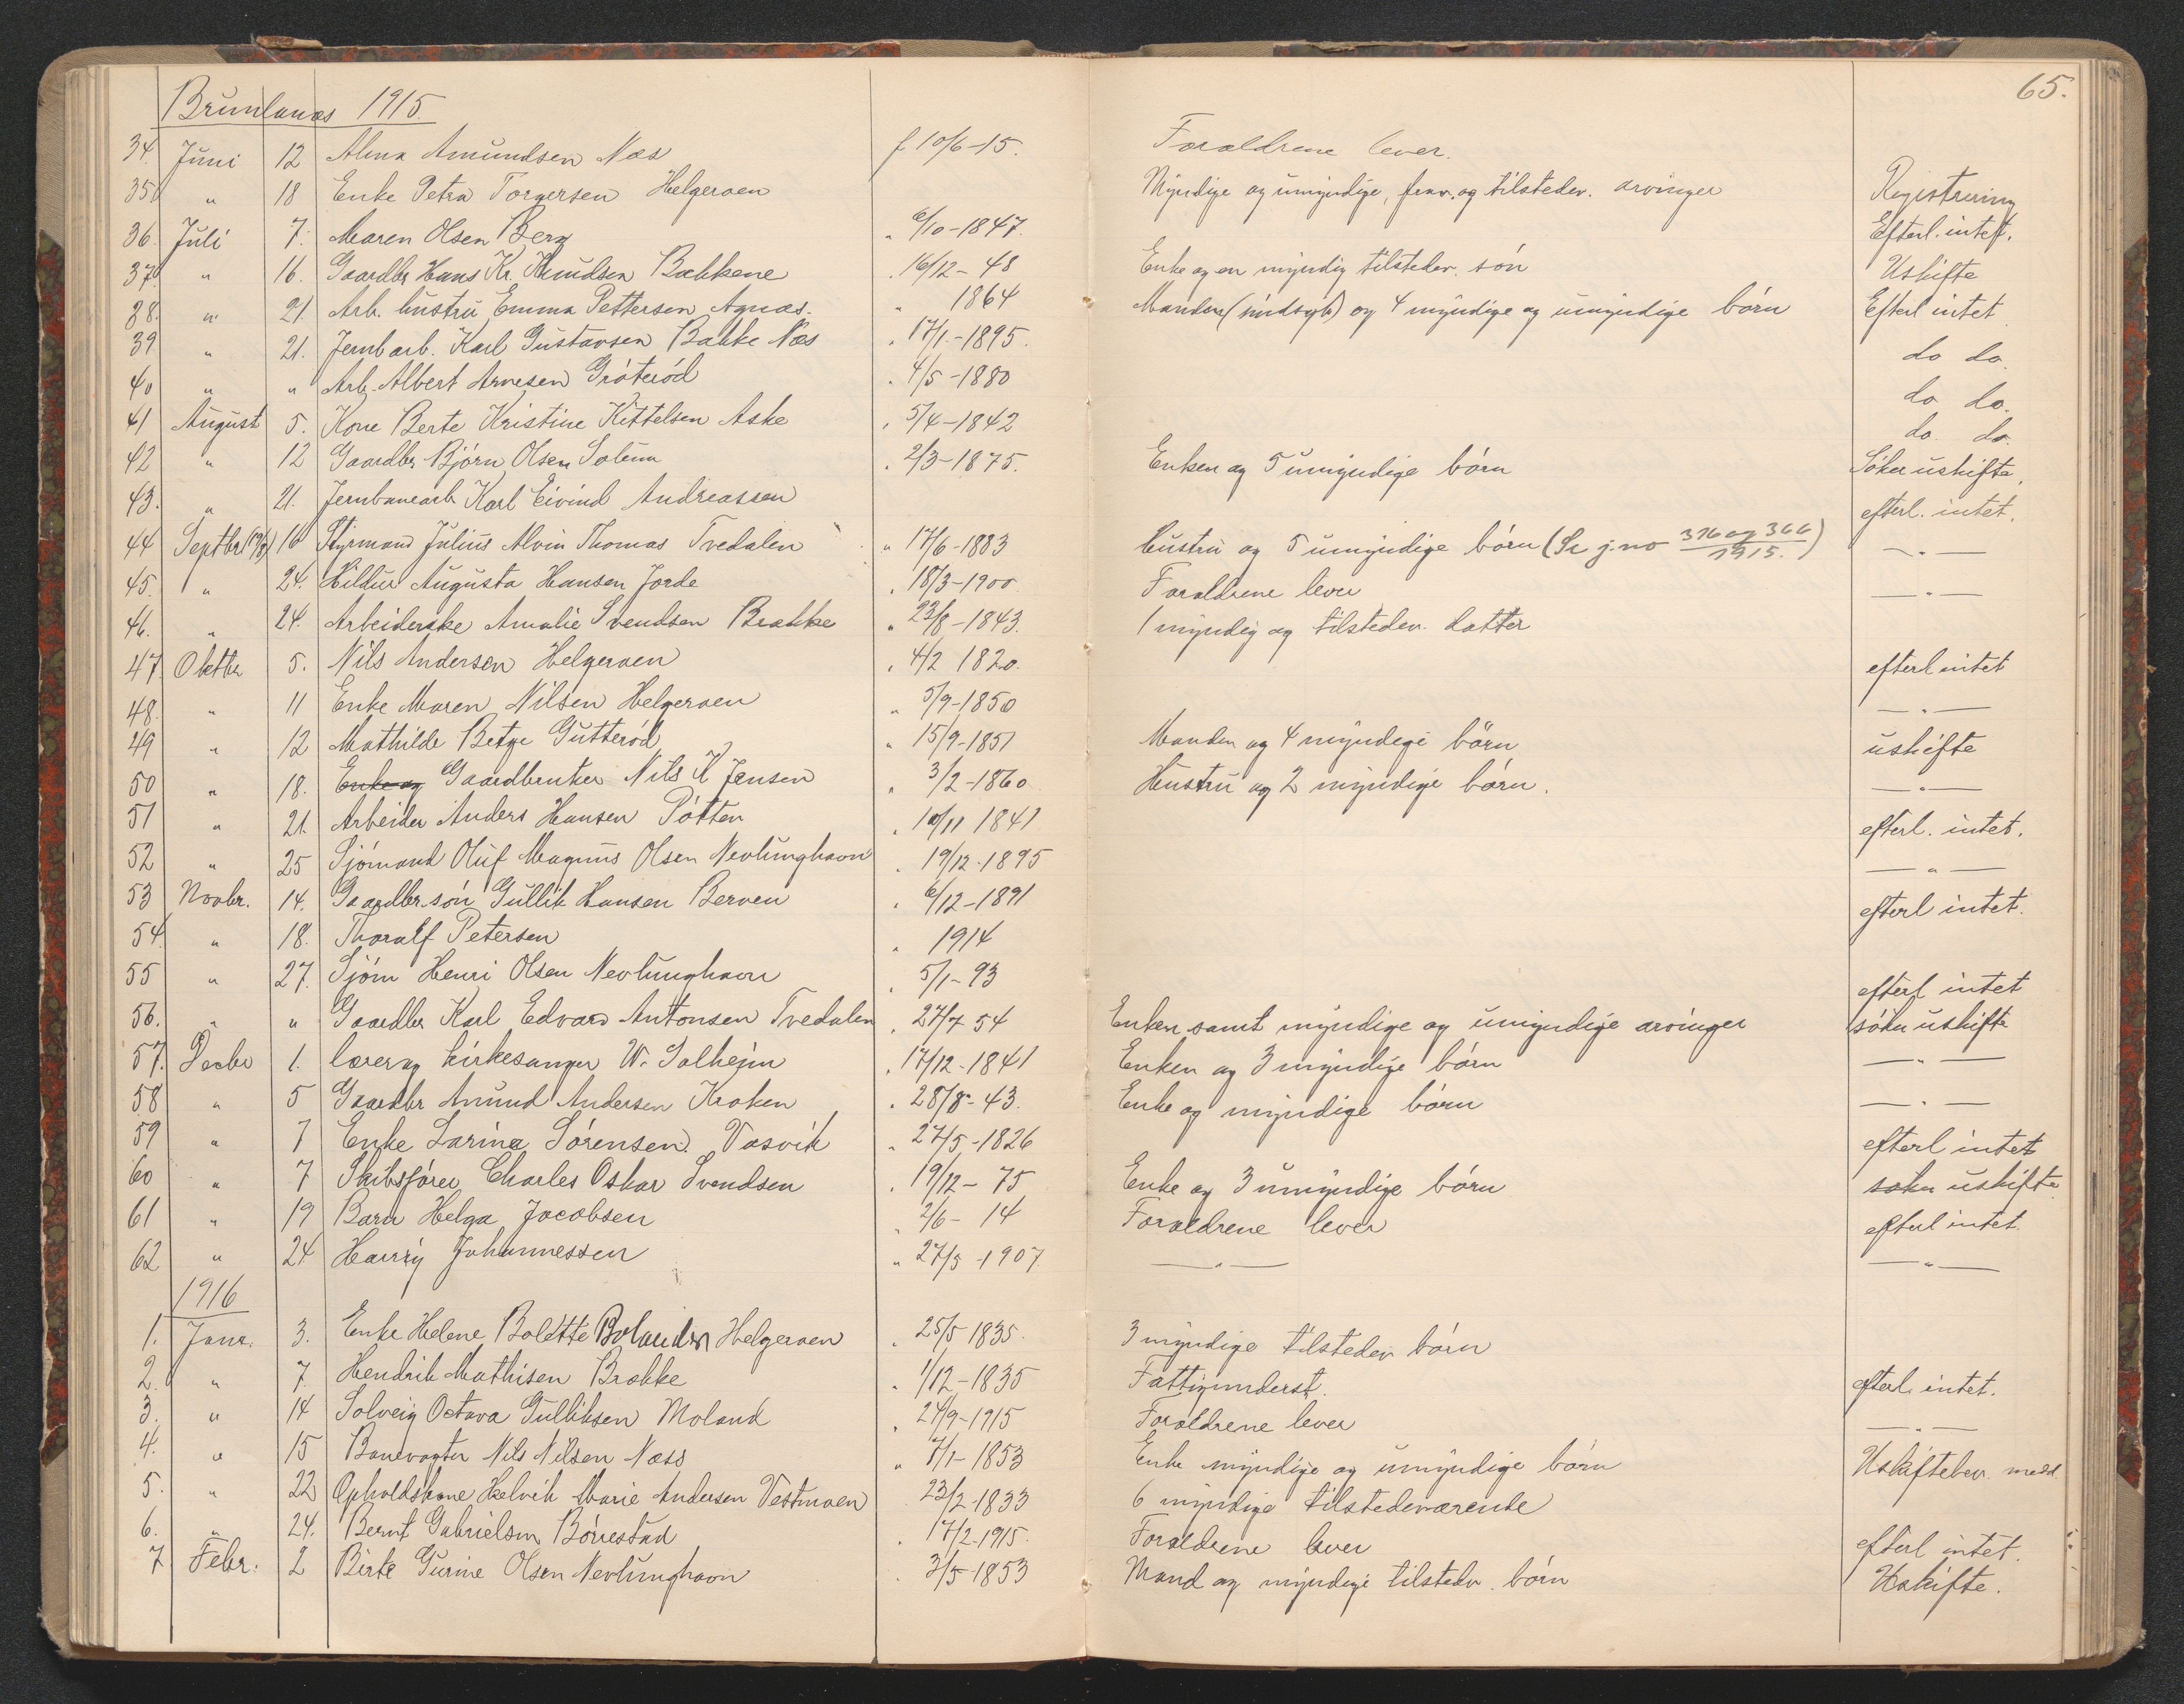 65.
Brunlanæs 1915
34. Juni 12 Alma Amundsen Næs f 10/6-15. Forældrene lever.
35. " 18 Enke Petra Torgersen Helgeroen Myndige og umyndige, frav. og tilstedev. arvinger Registrering
36. Juli 7. Maren Olsen Berg " 6/10-1847. Efterl. intet.
37. " 16. Gaardbr Hans Kr. Knudsen Bakkene " 16/12-48 Enke og en myndig tilstedev. søn Uskifte
38. " 21. Arb. hustru Emma Pettersen Agnæs. " 1864 Manden (sindsyk) og 4 myndige og umyndige børn Efterl intet
39 " 21. Jernb arb. Karl Gustavsen Bakke Næs " 17/1-1895. do do.
40 " " Arb. Albert Arnesen Gróterød " 4/5-1880 do do.
41 August 5. Kone Berte Kristine Kittelsen Aske " 5/4-1842 do. do.
42 " 12 Gaardbr Bjørn Olsen Solum " 2/3-1875. Enken og 5 umyndige børn Søker uskifte,
43. " 21. Jernbanearb Karl Eivind Andreassen efterl. intet.
44 Septbr (19/8) 16 Styrmand Julius Alvin Thomas Tvedalen " 17/6-1883 hustru og 5 umyndige børn (Se j.no 316 og 366/1915.) — " —
45. " 24. Hildur Augusta Hansen Jorde " 18/3-1900. Forældrene lever — " —
46. " 24. Arbeiderske Amalie Svendsen Brække " 23/8-1843. 1 myndig og tilstedev. datter
47 Oktbr 5. Nils Andersen Helgeroen " 4/2 1820. efterl intet
48. " 11 Enke Maren Nilsen Helgeroen " 5/9-1850 — " —
49 " 12 Mathilde Betze Gutterød " 15/9-1851 Manden og 4 myndige børn uskifte
50 " 18. Enke og Gaardbruker Nils K Jensen " 3/2-1860 Hustru og 2 myndige børn. — " —
51 " 21. Arbeider Anders Hansen Pøtten " 10/11 1841 efterl. intet.
52 " 25 Sjømand Oluf Magnus Olsen Nevlunghavn " 19/12-1895 — " —
53 Novbr. 14. Gaardbr. søn Gullik Hansen Berven " 6/12-1891 efterl intet.
54 " 18. Thoralf Petersen " 1914
55 " 27. Sjøm Henri Olsen Nevlunghavn " 5/1-93 efterl intet
56. " " Gaardbr Karl Edvard Antonsen Tvedalen " 27/7 54 Enken samt myndige og umyndige arvinger søker uskifte
57. Decbr 1. lærer og kirkesanger W. Solheim " 17/12-1841 Enken og 3 myndige børn — " —
58 " 5 Gaardbr Amund Andersen Kroken " 28/8-43. Enke og myndige børn — " —
59 " 7 Enke Larina Sørensen Vasvik " 27/5-1826 efterl intet
60 " 7 Skibsfører Charles Oskar Svendsen " 19/12-75 Enke og 3 umyndige børn søker uskifte
61 " 19 Barn Helga Jacobsen " 2/6-14 Forældrene lever efterl intet.
62 " 24 Harry Johannessen " 27/5-1907. — " — — " —
1916
1. Janr. 3. Enke Helene Bolette Bolander Helgeroen " 25/5 1835. 3 myndige tilstedev børn
2. " 7. Hendrik Mathisen Brække " 1/12-1835 Fattigunderst. efterl. intet.
3. " 14 Solveig Octava Gulliksen Moland " 24/9-1915 Forældrene lever — " —
4. " 15 Banevogter Nils Nilsen Næss " 7/1-1853 Enke myndige og umyndige børn Uskiftebev. medd
5. " 22 Opholdskone Helvik Marie Andersen Vestmoen 23/2-1833 6 myndige tilstedeværende
6. " 24. Bernt Gabrielsen Børrestad " 17/2-1915. Forældrene lever efterl intet.
7 Febr. 2 Birte Gurine Olsen Nevlunghavn " 3/5-1853 Mand og myndige tilstedv. børn Uskifte.